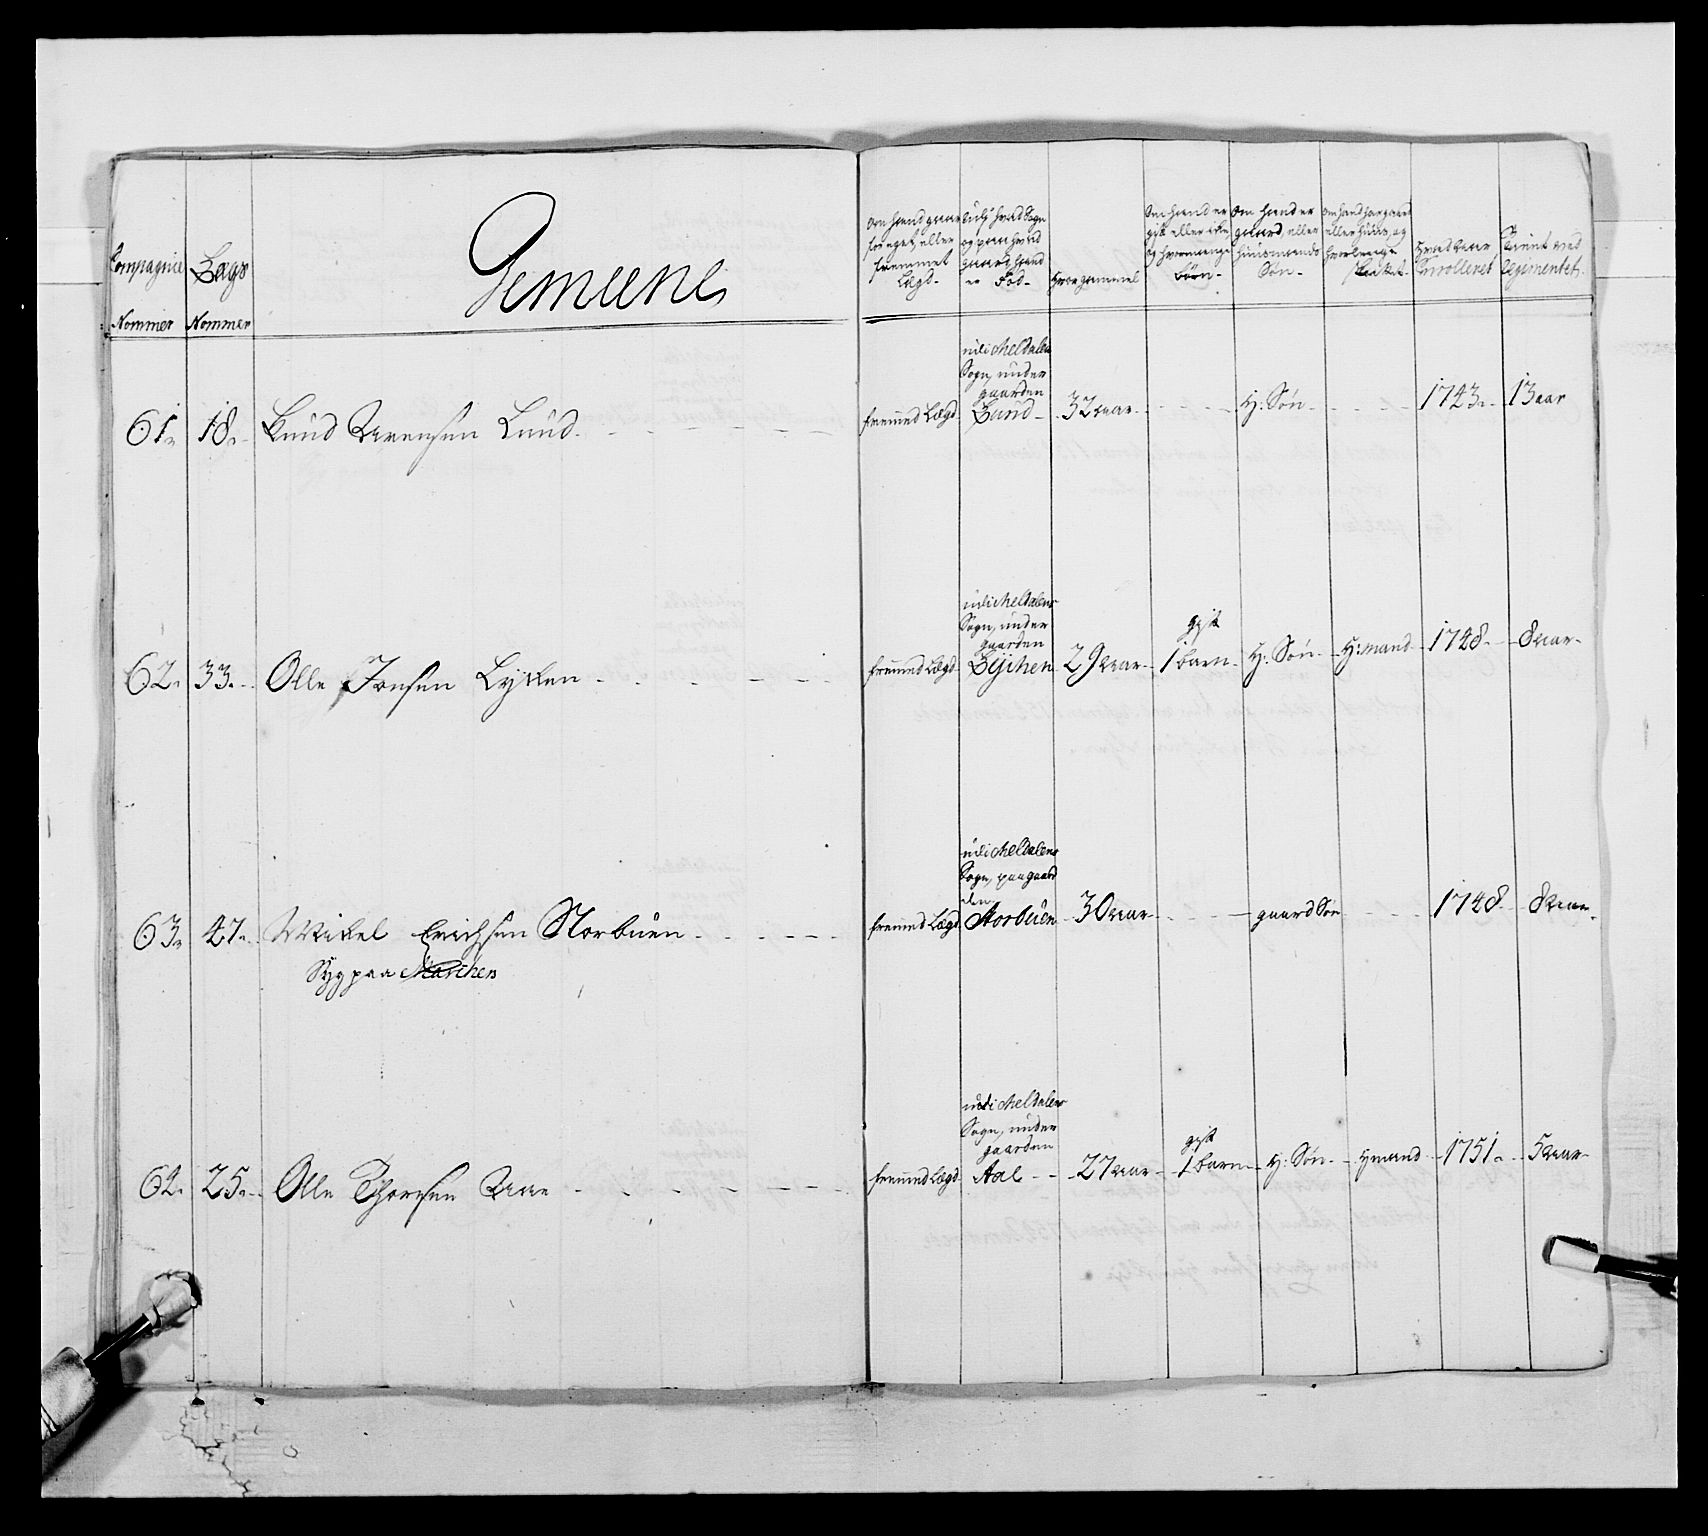 Compagnie
Nommer
Lægs
Nommer
Gemeene
om hand staar
for eget eller
fremmet
Lægd
udj hvad Sogn
og paa hvad
gaard hand
er Fød
hvor gammel
om hand er
gift eller icke
og hvormange
børn
om hand er
gaard, eller
huusmands
Søn
om hand har gaard
eller huus, og
hvad aar
Enrolleret
Tient ved
Regimentet
61. 18. Knud Arensen Lund
fremmed Lægd
udi Meldalens
Sogn, under
gaarden
Lund
32 aar
H: Søn
1743
13 aar
62. 33. Olle Jonsen Lycken
fremmed Lægd
udi Meldalens
Sogn, under
gaarden
Lychen
29 aar
gift
1 barn
H: Søn
H: mand
1748
8 aar
63. 47. Mikel Erichsen Storbuen
Syg paa Marchen
fremmed Lægd
udi Meldalens
Sogn, paa gaard
den
Storbuen
30 aar
gaard Søn
1748
8 aar
62. 25. Olle Thoresen Aae
fremmed Lægd
udi Meldalens
Sogn, under
gaarden
Aal
27 aar
gift
1 barn
H: Søn
Hmand
1751
5 aar